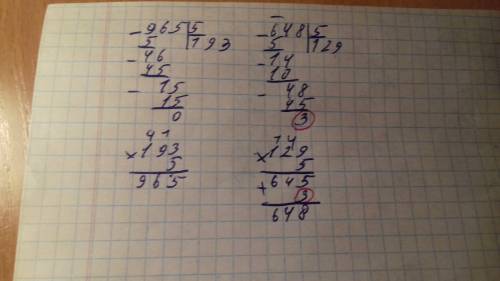 - 965 | 5
5 | 193
- 46
45
- 15
15
0
4 1
× 193
5
965
- 648 | 5
5 | 129
- 14
10
- 48
45
3
1 4
× 129
5
+ 645
3
648